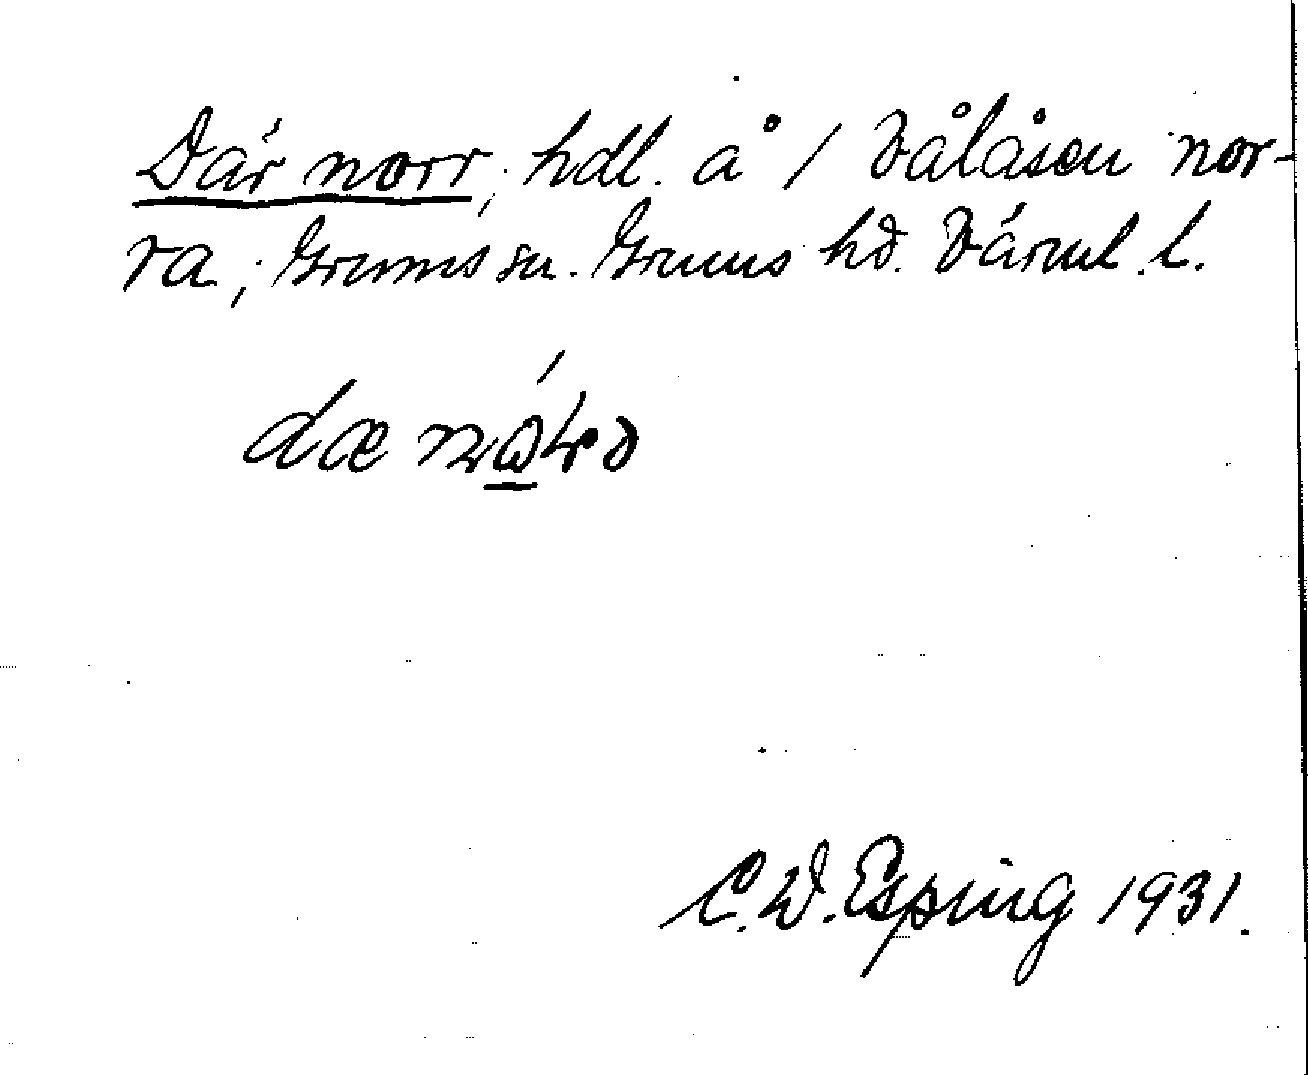 Där norr, hdl. å 1 Vålåsen nor-
ra, Grums sn. Grums hd. Värml. l.
dæ
C. W. Esping 1931.